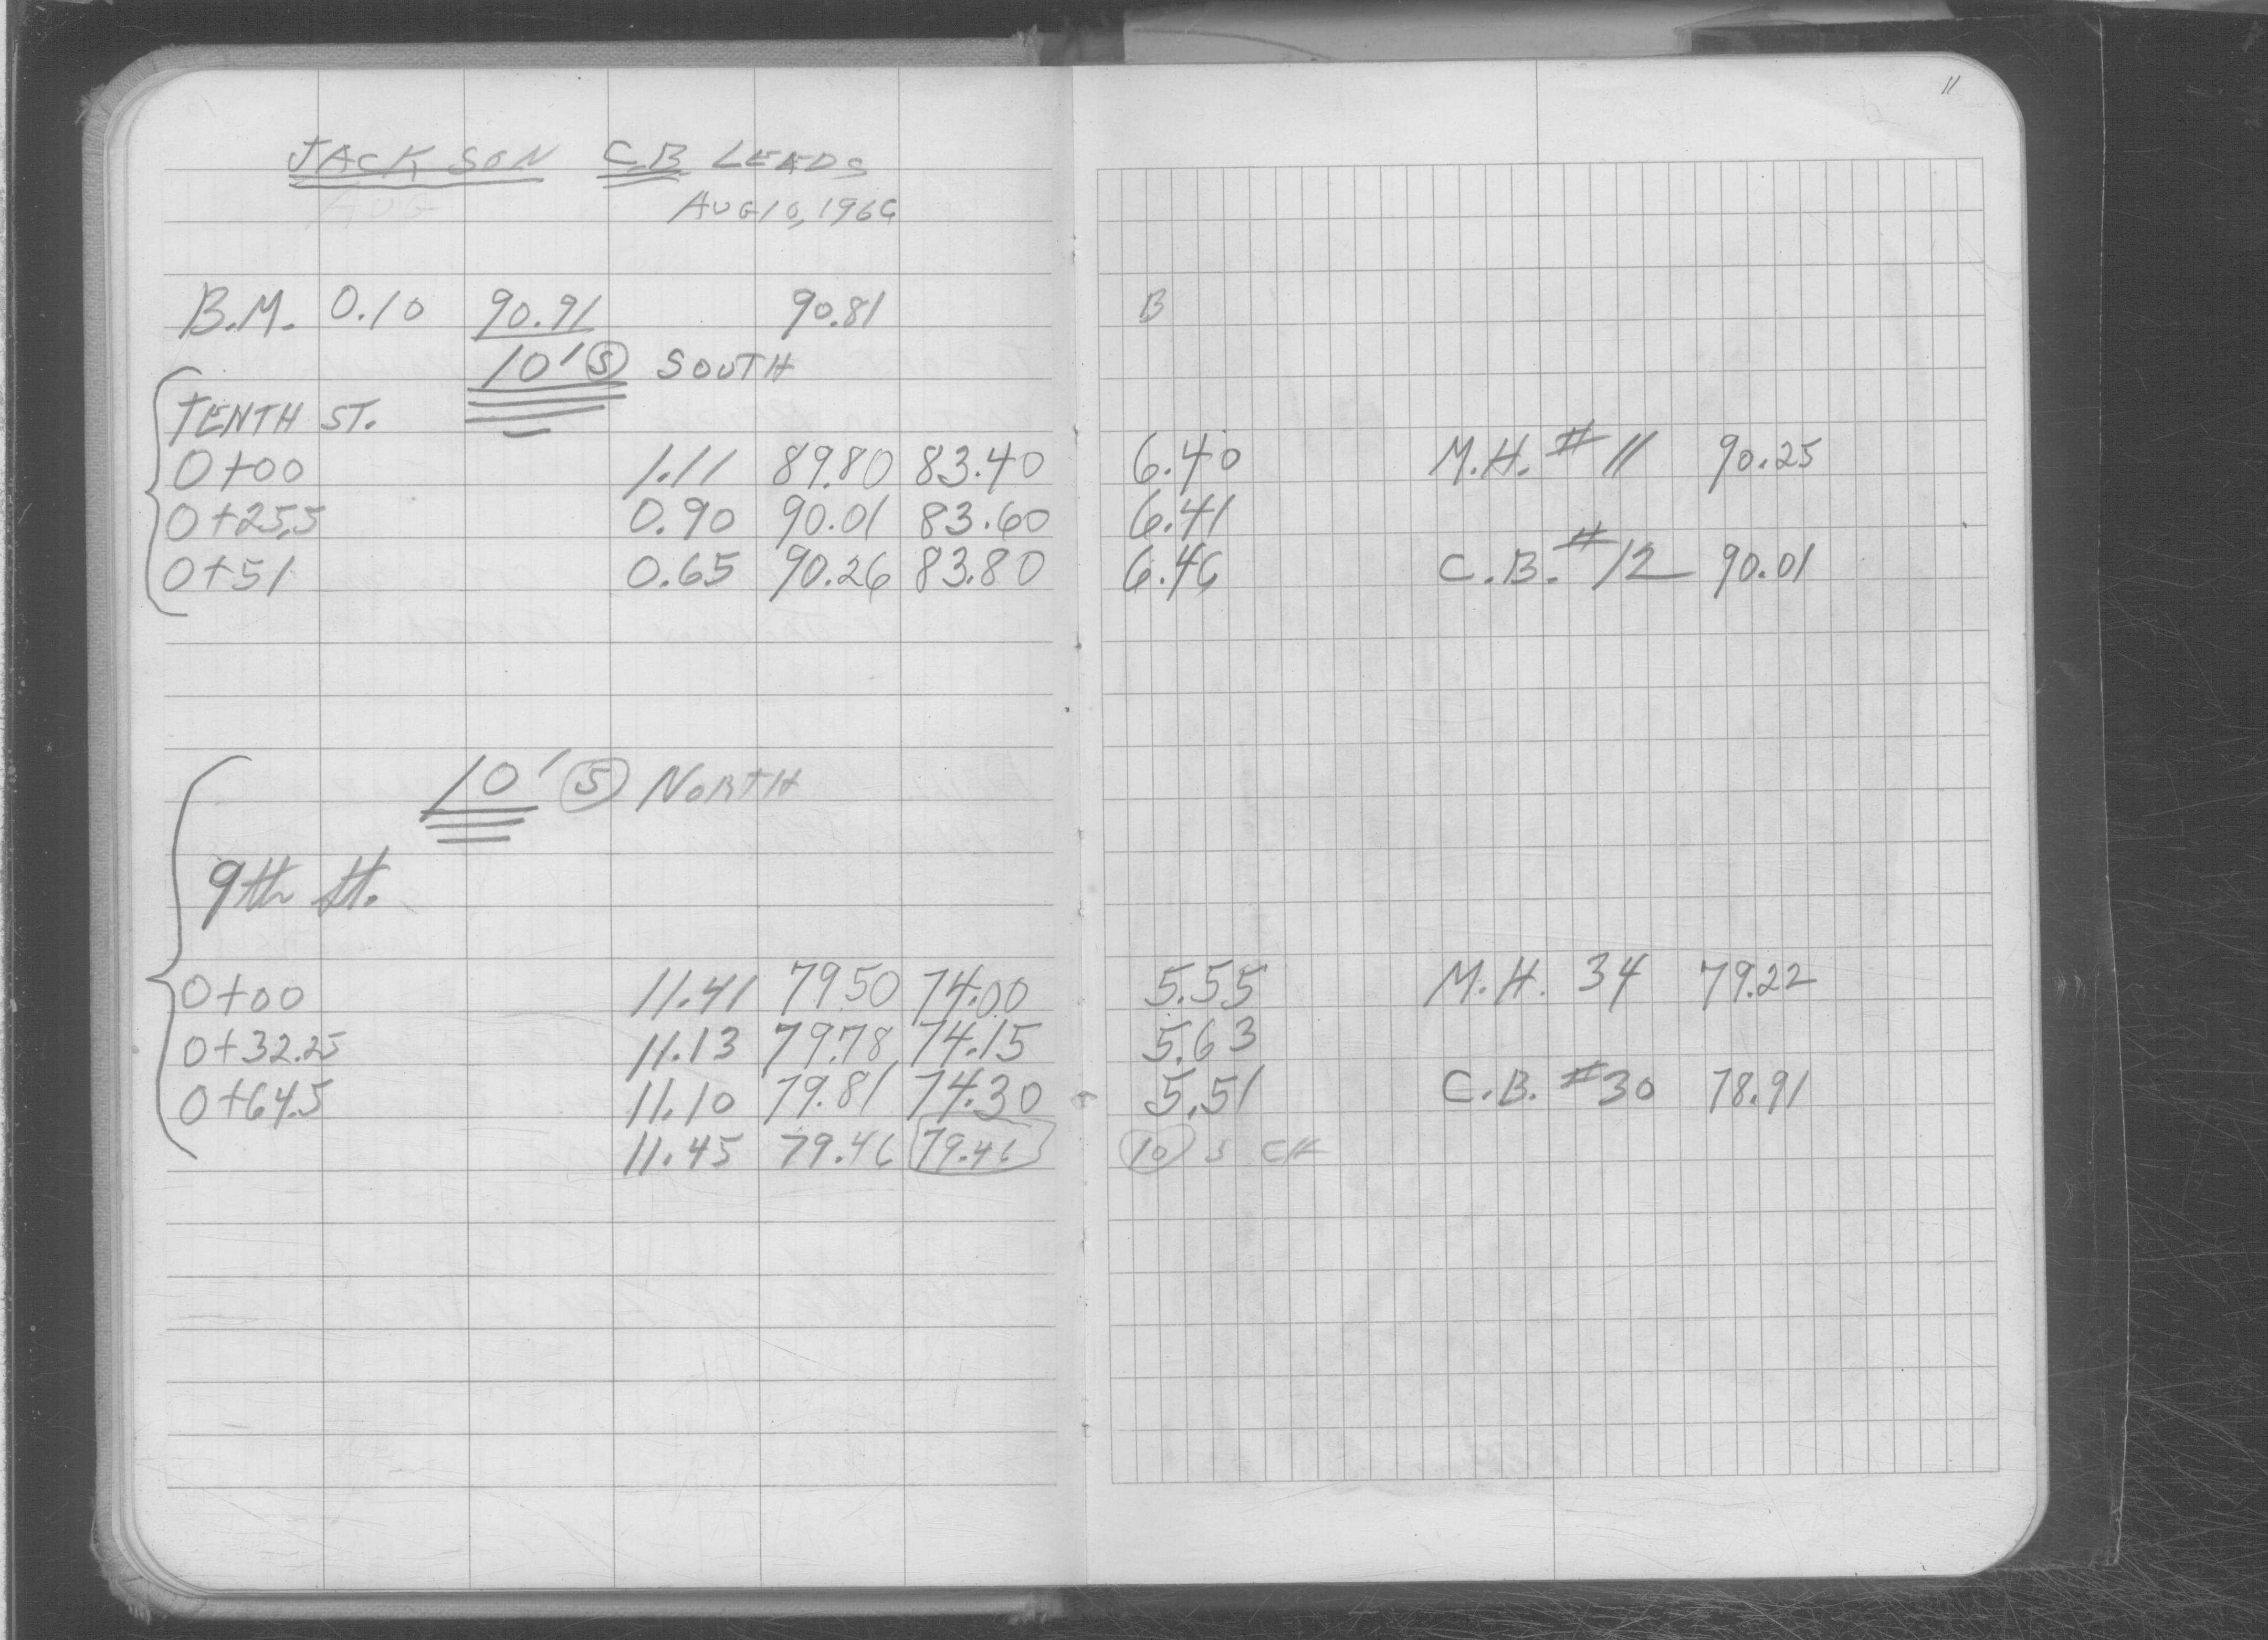 11
JACKSON C.B LEADS
AUG 10, 1966
B.M. 0.10 90.91 90.81 B
10' S SOUTH
TENTH ST.
0+00 1.11 89.80 83.40 6.40 M.H. # 11 90.25
0+25.5 0.90 90.01 83.60 6.41
0+51 0.65 90.26 83.80 6.46 C.B. # 12 90.01
10' S NORTH
9th St.
0+00 11.41 79.50 74.00 5.55 M.H. 34 79.22
0+32.25 11.13 79.78 74.15 5.63
0+64.5 11.10 79.81 74.30 5.51 C.B. #30 78.91
11.45 79.46 79.46 10 S CK